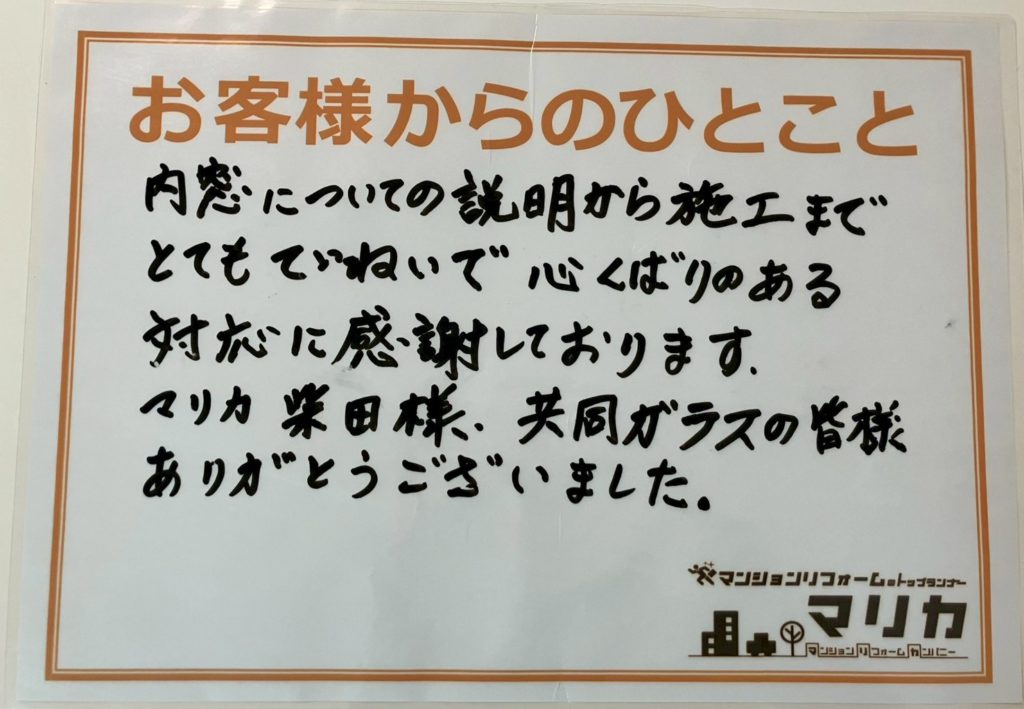 お客様からのひとこと
内窓についての説明から施工まで
とてもていねいで 心くばりのある
対応に感謝しております.
マリカ 柴田様、共同ガラスの皆様
ありがとうございました。
マンションリフォームのトップランナー
マリカ
マンションリフォームカンパニー